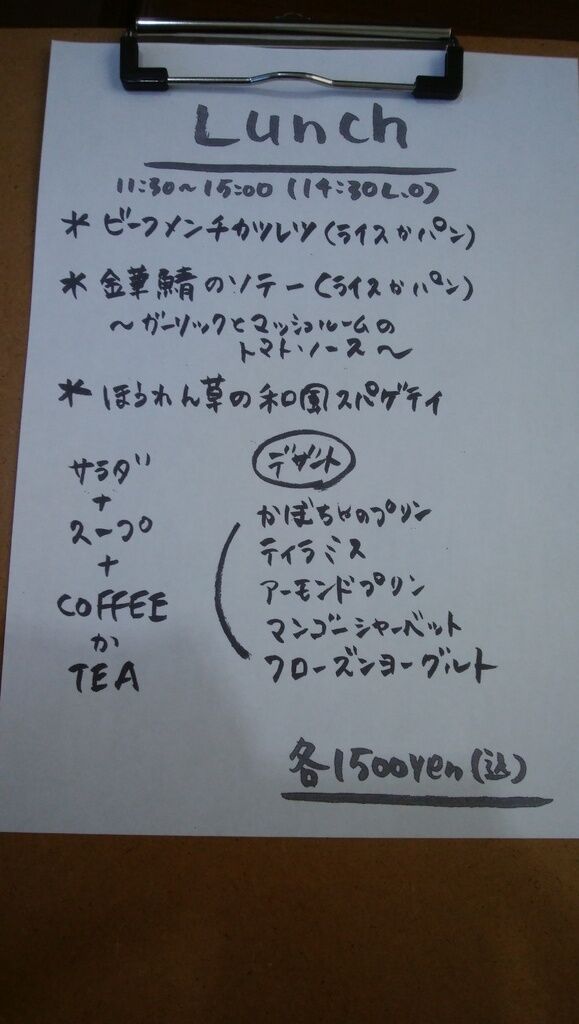 Lunch
11:30~15:00 (14:30L.O)
* ビーフメンチカツレツ(ライスかパン)
* 金華鯖のソテー(ライスかパン)
~ガーリックとマッシュルームの
トマトソース~
* ほうれん草の和風スパゲティ
サラダ
+
スープ
+
COFFEE
か
TEA
デザート
かぼちゃのプリン
ティラミス
アーモンドプリン
マンゴーシャーベット
フローズンヨーグルト
各1500yen(込)